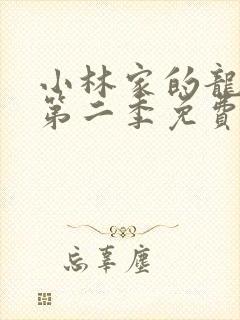 小林家的龍
第二季免費
忘辜塵